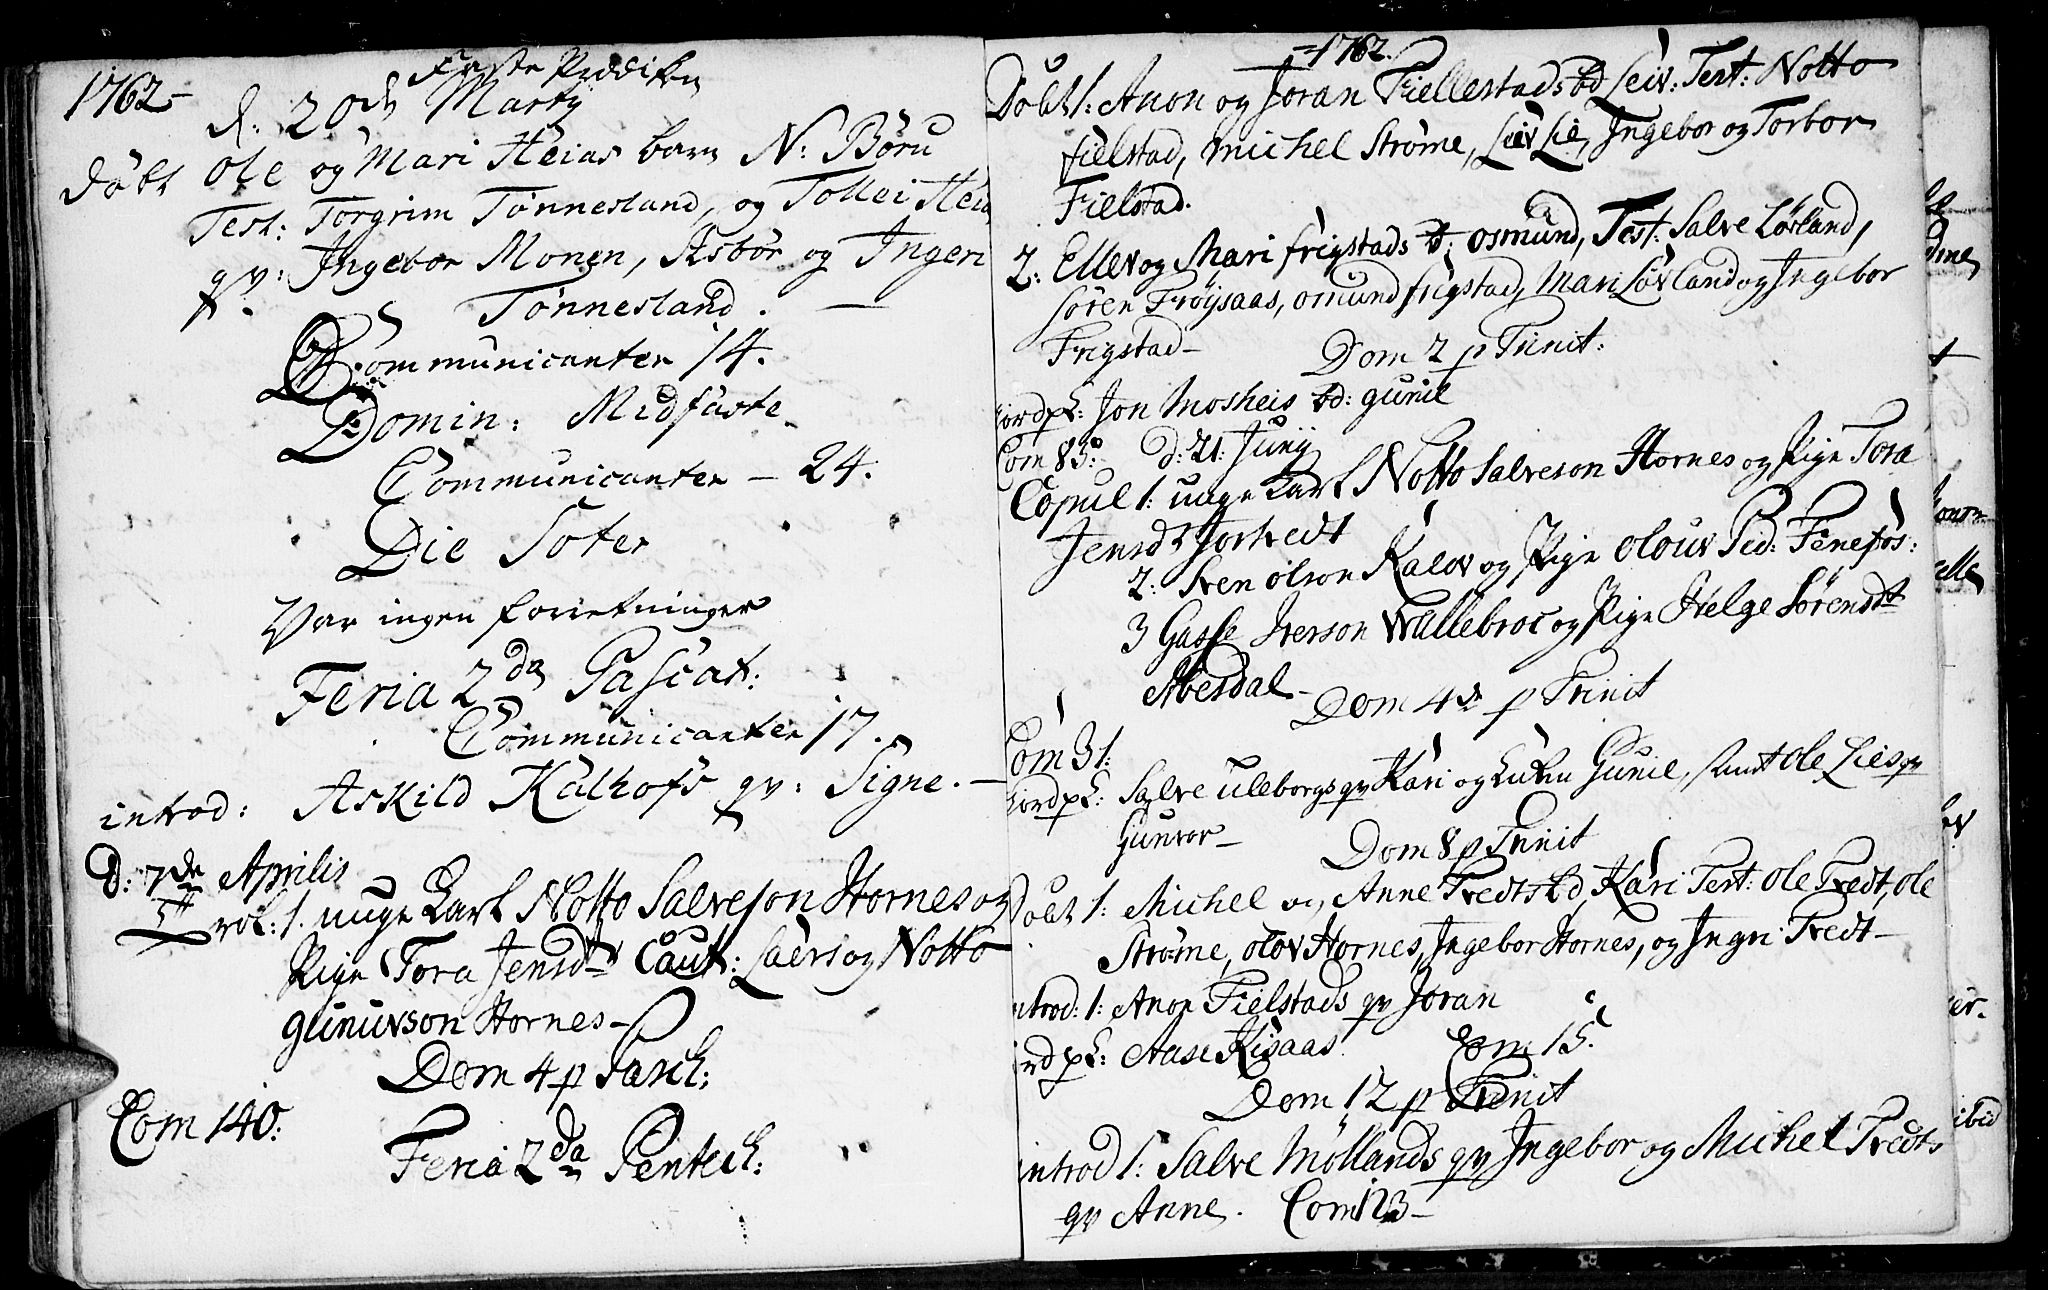 1762
Faste Prædiken
d: 20de Martij
Døbt Ole og Mari Heias barn N: Børu
Test: Torgrim Tønnesland, og Tollei Heia
qv: Ingebor Monen, Asbor og Ingeri
Tønnesland.
Communicanter 14.
Domin: Midfaste
Communicanter – 24.
Die
Var ingen forretninger
Feria 2da Paschat:
Communicanter 17.
introd: Askild Kälhofs qv: Signe. –
D: 7de Aprilis
1. unge Karl Notto Salveson Hornes og
Pige Tora Jensdt Caut: Laers og Notto
Gunuvson Hornes –
Dom 4 p Pasch:
Com 140:
Feria 2da Pentech:
1762.
Døbt 1: Anon og Joran Fiellestads bd Leiv: Test: Notto
fielstad, Michel Strøme, Liv Lie, Ingebor og Torbor
Fielstad.
2: Ellev og Mari frigstads b: osmund, Test: Salve Løvland,
Søren Frøysaas, osmund frigstad, Mari Løvland og Ingebor
Frigstad –
Dom 2 p Trinit:
Jordpk: Jon Mosheis bd: gunil
Com 85: d: 21: Junij
Copul 1: unge Karl Notto Salveson Hornes og Pige Tora
Jensdt Jortvedt
2: Sven olson Kaløv og Pige olouv Ped: Fenefos:
3 Gasse Iverson Wallebroc og Pige Helge Sørensdt
Abesdal –
Dom 4de p Trinit
Com 31:
Jordpk: Salve uleborgs qv Kari og Gunil, samt Ole Lies qv
Gunvor –
Dom 8 p Trinit
Døbt 1: Michel og Anne Tvedts bd Kari Test: Ole Tvedt, Ole
Strøme, olov Hornes, Ingebor Hornes, og Ingri Tvedt –
introd: 1: Anon Fielstads qv Joran
Jordpk: Aase Kisaas Com 15.
Dom 12 p Trinit
introd 1: Salve Møllands qv Ingebor og Michel Tvedts
qv Anne. Com 123 –